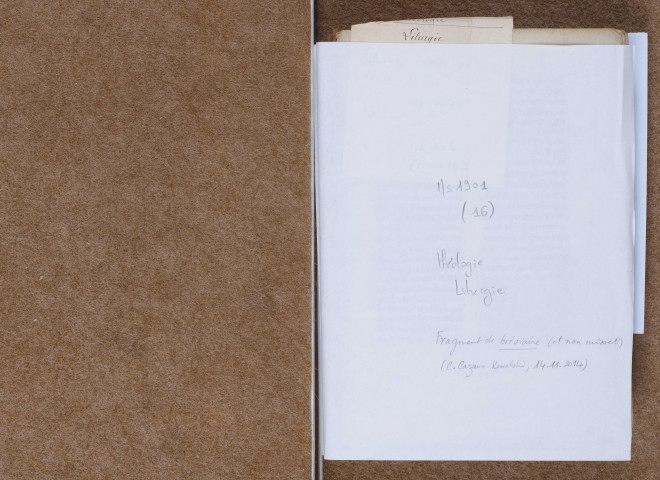 Liturgie
Ms 1901
(16)
Théologie
Liturgie
Fragment de bréviaire (et non missel)
(C. 14.11.2014)